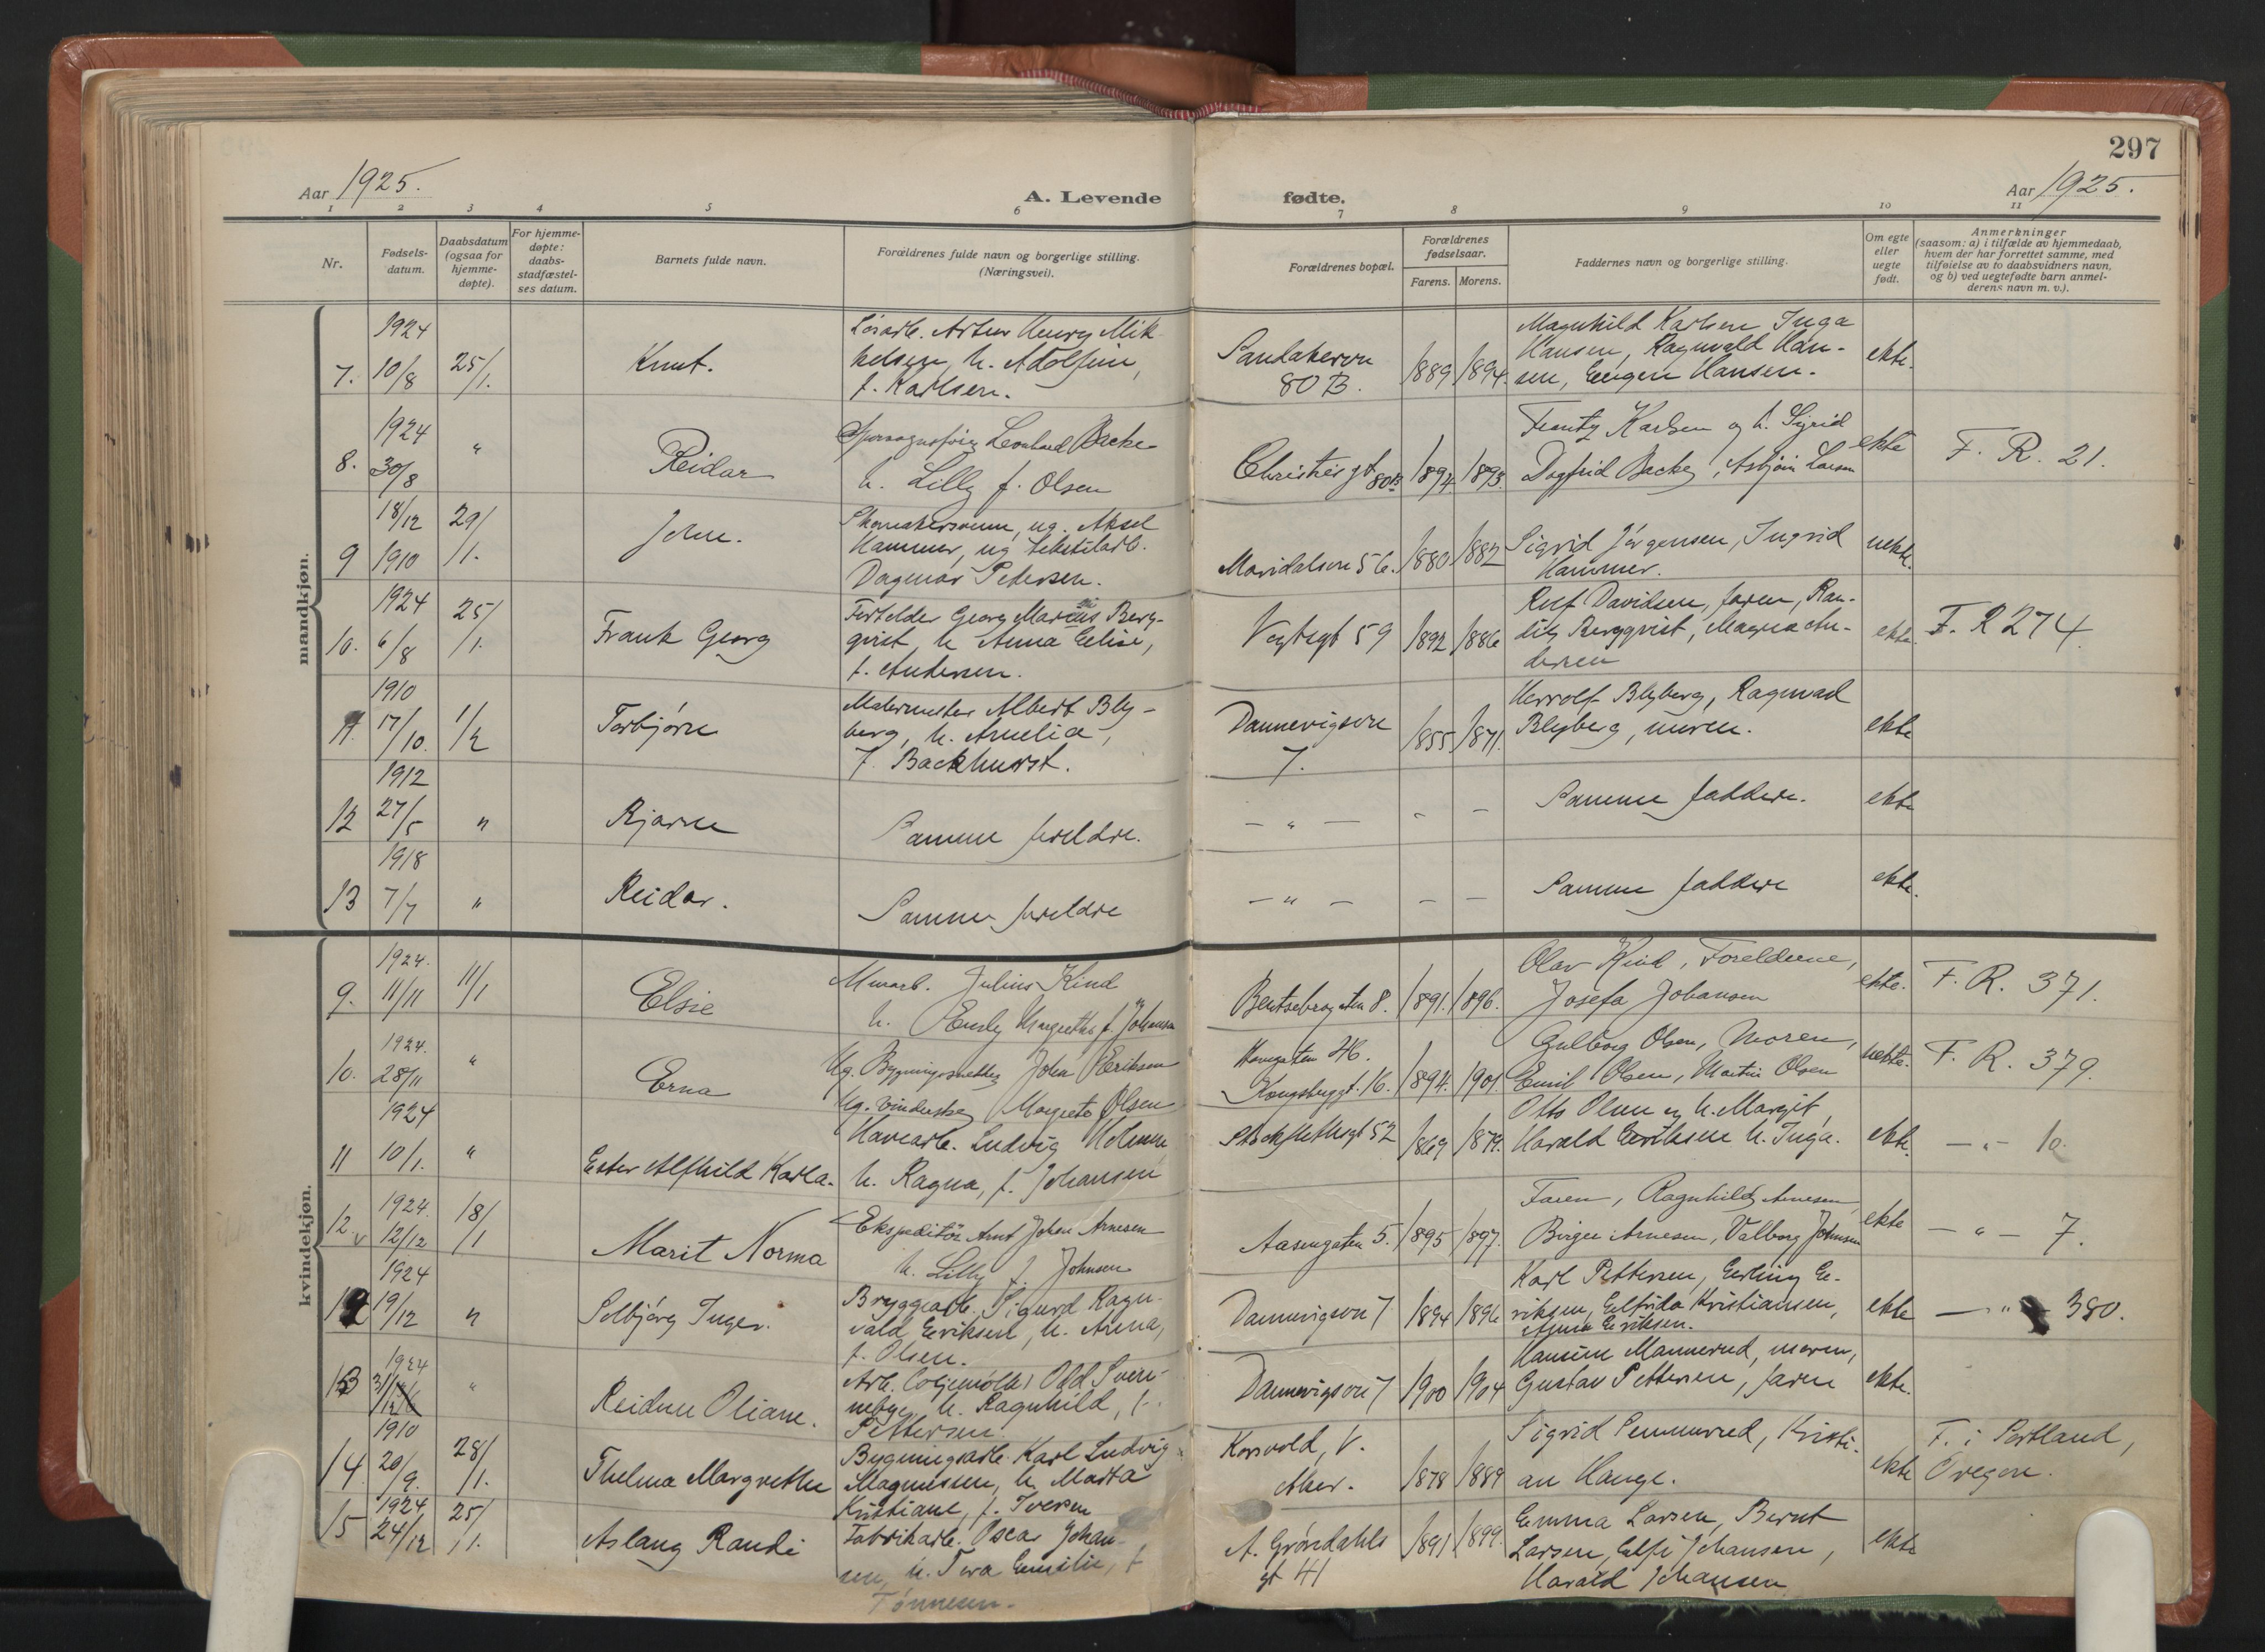 297
Aar 1925.
A. Levende fødte.
Aar 1925.
1 2 3 4 5 6 7 8 9 10 11
Nr.
Fødsels-
datum.
Daabsdatum
(ogsaa for
hjemme-
døpte).
For hjemme-
døpte:
daabs-
stadfæstel-
ses datum.
Barnets fulde navn.
Forældrenes fulde navn og borgerlige stilling.
(Næringsvei).
Forældrenes bopæl.
Forældrenes
fødselsaar.
Farens. Morens.
Faddernes navn og borgerlige stilling.
Om egte
eller
uegte
født.
Anmerkninger
(saasom: a) i tilfælde av hjemmedaab,
hvem der har forrettet samme, med
tilføielse av to daabsvidners navn,
og b) ved uegtefødte barn anmel-
derens navn m. v.).
mandkjøn.
7. 1924 10/8 25/1. Knut.
Løsarb. Artur Henry Mik-
kelsen, h. Adolfine,
f. Karlsen.
Sandakervn
80 B.
1889 1894.
Magnhild Karlsen Inga
Hansen, Ragnvald Han-
sen, Eugen Hansen.
ekte.
8. 1924 30/8 " Reidar
Leonhard Backe
h. Lilly f. Olsen
Christies gt 80B
1894. 1893.
Frantz Karlsen og h. Sigrid
Dagfrid Backe, Asbjörn Larsen
ekte
F. R. 21.
9 18/12 1910 29/1. John.
ug. Aksel
Hammer, ug tekstilarb.
Dagmar Petersen.
Maridalsvn 56.
1880 1882
Sigrid Jörgensen, Ingrid
Hammer.
uekte.
10. 1924 6/8 25/1. Frank Georg
Georg Marcus Berg-
qvist h Anna Elise,
f. Andersen.
Vogtsgt 59
1892 1886
Rolf Davidsen, faren, Ran-
di Bergqvist, Magna An-
dersen
ekte.
F. R 274.
11. 1910 17/10. 1/2 Torbjørn
Malermester Albert Bly-
berg, h. Amelia,
f. Backhurst.
Dannevigsvn
7.
1855 1871.
Herrolf Blyberg, Ragnvad
Blyberg, moren.
ekte
12 1912 27/5 " Bjarne
Samme foreldre.
— " — - —
Samme faddere.
ekte
13 1918 7/7 " Reidar.
Samme foreldre
— " — — —
Samme faddere
ekte.
kvindekjøn.
9. 1924. 11/11 11/1 Elsie
Murarb. Julius Kind
h. Emily Margrethe f. Johansen
Bentsebrogaten 8.
1891. 1896.
Olav Kind, Foreldrene,
Josefa Johansen
ekte.
F. R. 371.
10. 1924. 28/11 " Erna
Ug. John Eriksen
Ug. Margrete Olsen
Kongsbygt. 16.
1894. 1901.
Gulborg Olsen, Moren,
Emil Olsen, Martin Olsen
uekte.
F. R. 379.
11 1924 10/1. " Ester Alfhild Karla.
Havearb. Ludvig Holmen
h. Ragna, f. Johansen
Stockflethsgt 52
1869 1879.
Otto Olsen og h. Margit,
Harald Eriksen h. Inga.
ekte.
— " — 10.
12. 1924. 12/12 18/1 Marit Norma
Ekspeditör Arnt Johan Arnesen
h. Lilly f. Johnsen
Aasengaten 5.
1895 1897.
Faren, Ragnhild Arnesen,
Birger Arnesen, Valborg Johnsen
ekte
— " — 7.
12 1924 19/12 " Solbjørg Inger.
Bryggearb. Sigurd Ragn-
vald Eriksen, h. Arena,
f. Olsen.
Dannevigsvn 7
1894 1896
Karl Pettersen, Erling E-
riksen, Elfrida Kristiansen,
Anna Eriksen.
ekte
— " — 380.
13 1924 31/12 " Reidun Oliane.
Arb. Odd Sven-
nebye h. Ragnhild, f.
Pettersen.
Dannevigsvn 7
1900 1904
Mannerud, moren,
Gustav Pettersen, faren
ekte.
14. 1910 20/9. 28/1. Thelma Margrethe
Bygningsarb. Karl Ludvig
Magnussen, h. Marta
Kristiane, f. Iversen
Korsvold, V.
Aker.
1878 1889
Sigrid Semmerud, Kristi-
an Hauge.
ekte
F. i Portland,
Oregon.
15 1924 24/12 25/1. Aslaug Randi
Fabrikarb. Oscar Johan-
sen, h. Tora Emilie, f
Tønnesen.
A. Grøndahls
gt 41
1891 1899.
Emma Larsen, Bernt
Larsen, Elfi Johansen,
Harald Johansen
ekte